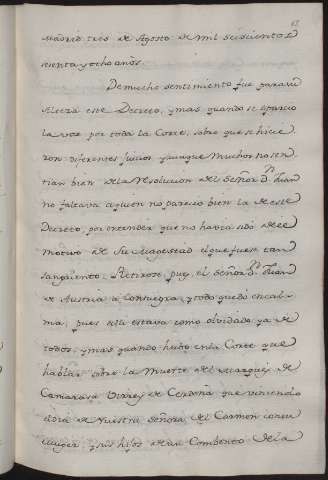 Madrid tres de Agosto de mil seiscientos
setenta y ocho años.
De mucho sentimiento fue para su
este Decreto, y mas quando se esparcio
la voz por toda la Corte, sobre que se hicie-
ron diferentes juicios y aunque muchos no sen-
tian bien de la resolucion del Señor Dn. Juan
no faltava a quien no parecio bien la de este
Decreto, por entender que no havia sido de el
motivo de Su Magestad el que fuese tan
sangriento. Retirose, pues, el Señor Dn. Juan
de Austria a Consuegra, y todo quedo en cal-
ma, pues alli estava como olvidado ya de
todos, y mas quando huvo en la Corte que
hablar sobre la Muerte del Marques de
Camarasa Virrey de Cerdeña que viniendo
el dia de Nuestra Señora del Carmen con su
muger, y sus hijos de un Combento de la